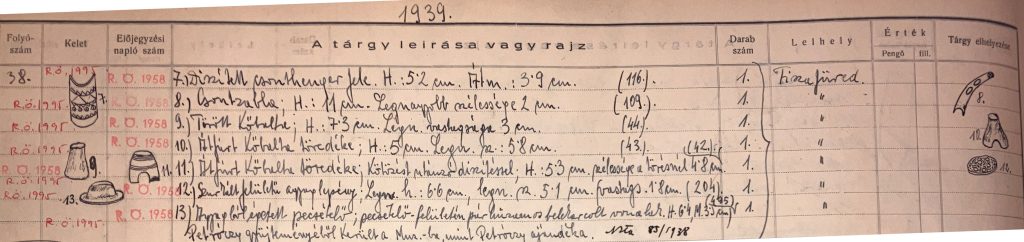 1939.
Folyó-szám Kelet Előjegyzési napló szám A tárgy leírása vagy rajz Darab szám Lelhely Érték Pengő fill. Tárgy elhelyezése
38. R.Ö. 1995 R. Ö. 1958 7.) Díszített csonthenger fele. H.: 5·2 cm. Átm.: 3·9 cm. (116). 1. Tiszafüred.
R.Ö. 1995. 7. R. Ö. 1958 8.) Csontzabla; H.: 11 cm. Legnagyobb szélessége 2 cm. (109.) 1. " 8.
R.Ö. 1995. R. Ö. 1958 9.) Törött Kőbalta; H.: 7·3 cm. Legn. vastagsága 3 cm. (44.) 1. "
R.Ö. 1995 R. Ö. 1958 10.) Átfúrt Kőbalta töredéke; H.: 5 cm. Legn. sz.: 5·8 cm. (43.) 1. " 10.
R.Ö. 1995 9. R. Ö. 1958 11. 11.) Átfúrt Kőbalta töredéke; Kötözést utánzó díszítéssel, H.: 5·3 cm. szélessége a törésnél 4·8 cm. (42.) 1. "
R.Ö. 1995 13. R. Ö. 1958 12.) felületű agyaglepény. Legn. h.: 6·6 cm, legn. sz. 5·1 cm. vastags. 1·8 cm. (204). 1. "
R.Ö. 1995. R. Ö. 1958 13.) Agyagból épített pecsétlő; pecsétlő-felületén párhuzamos bekarcolt vonalak. H. 6·4 M. 3·5 cm. 1. "
Petróczy gyűjteményéből került a Múz.-ba, mint Petróczy ajándéka. 83/1938